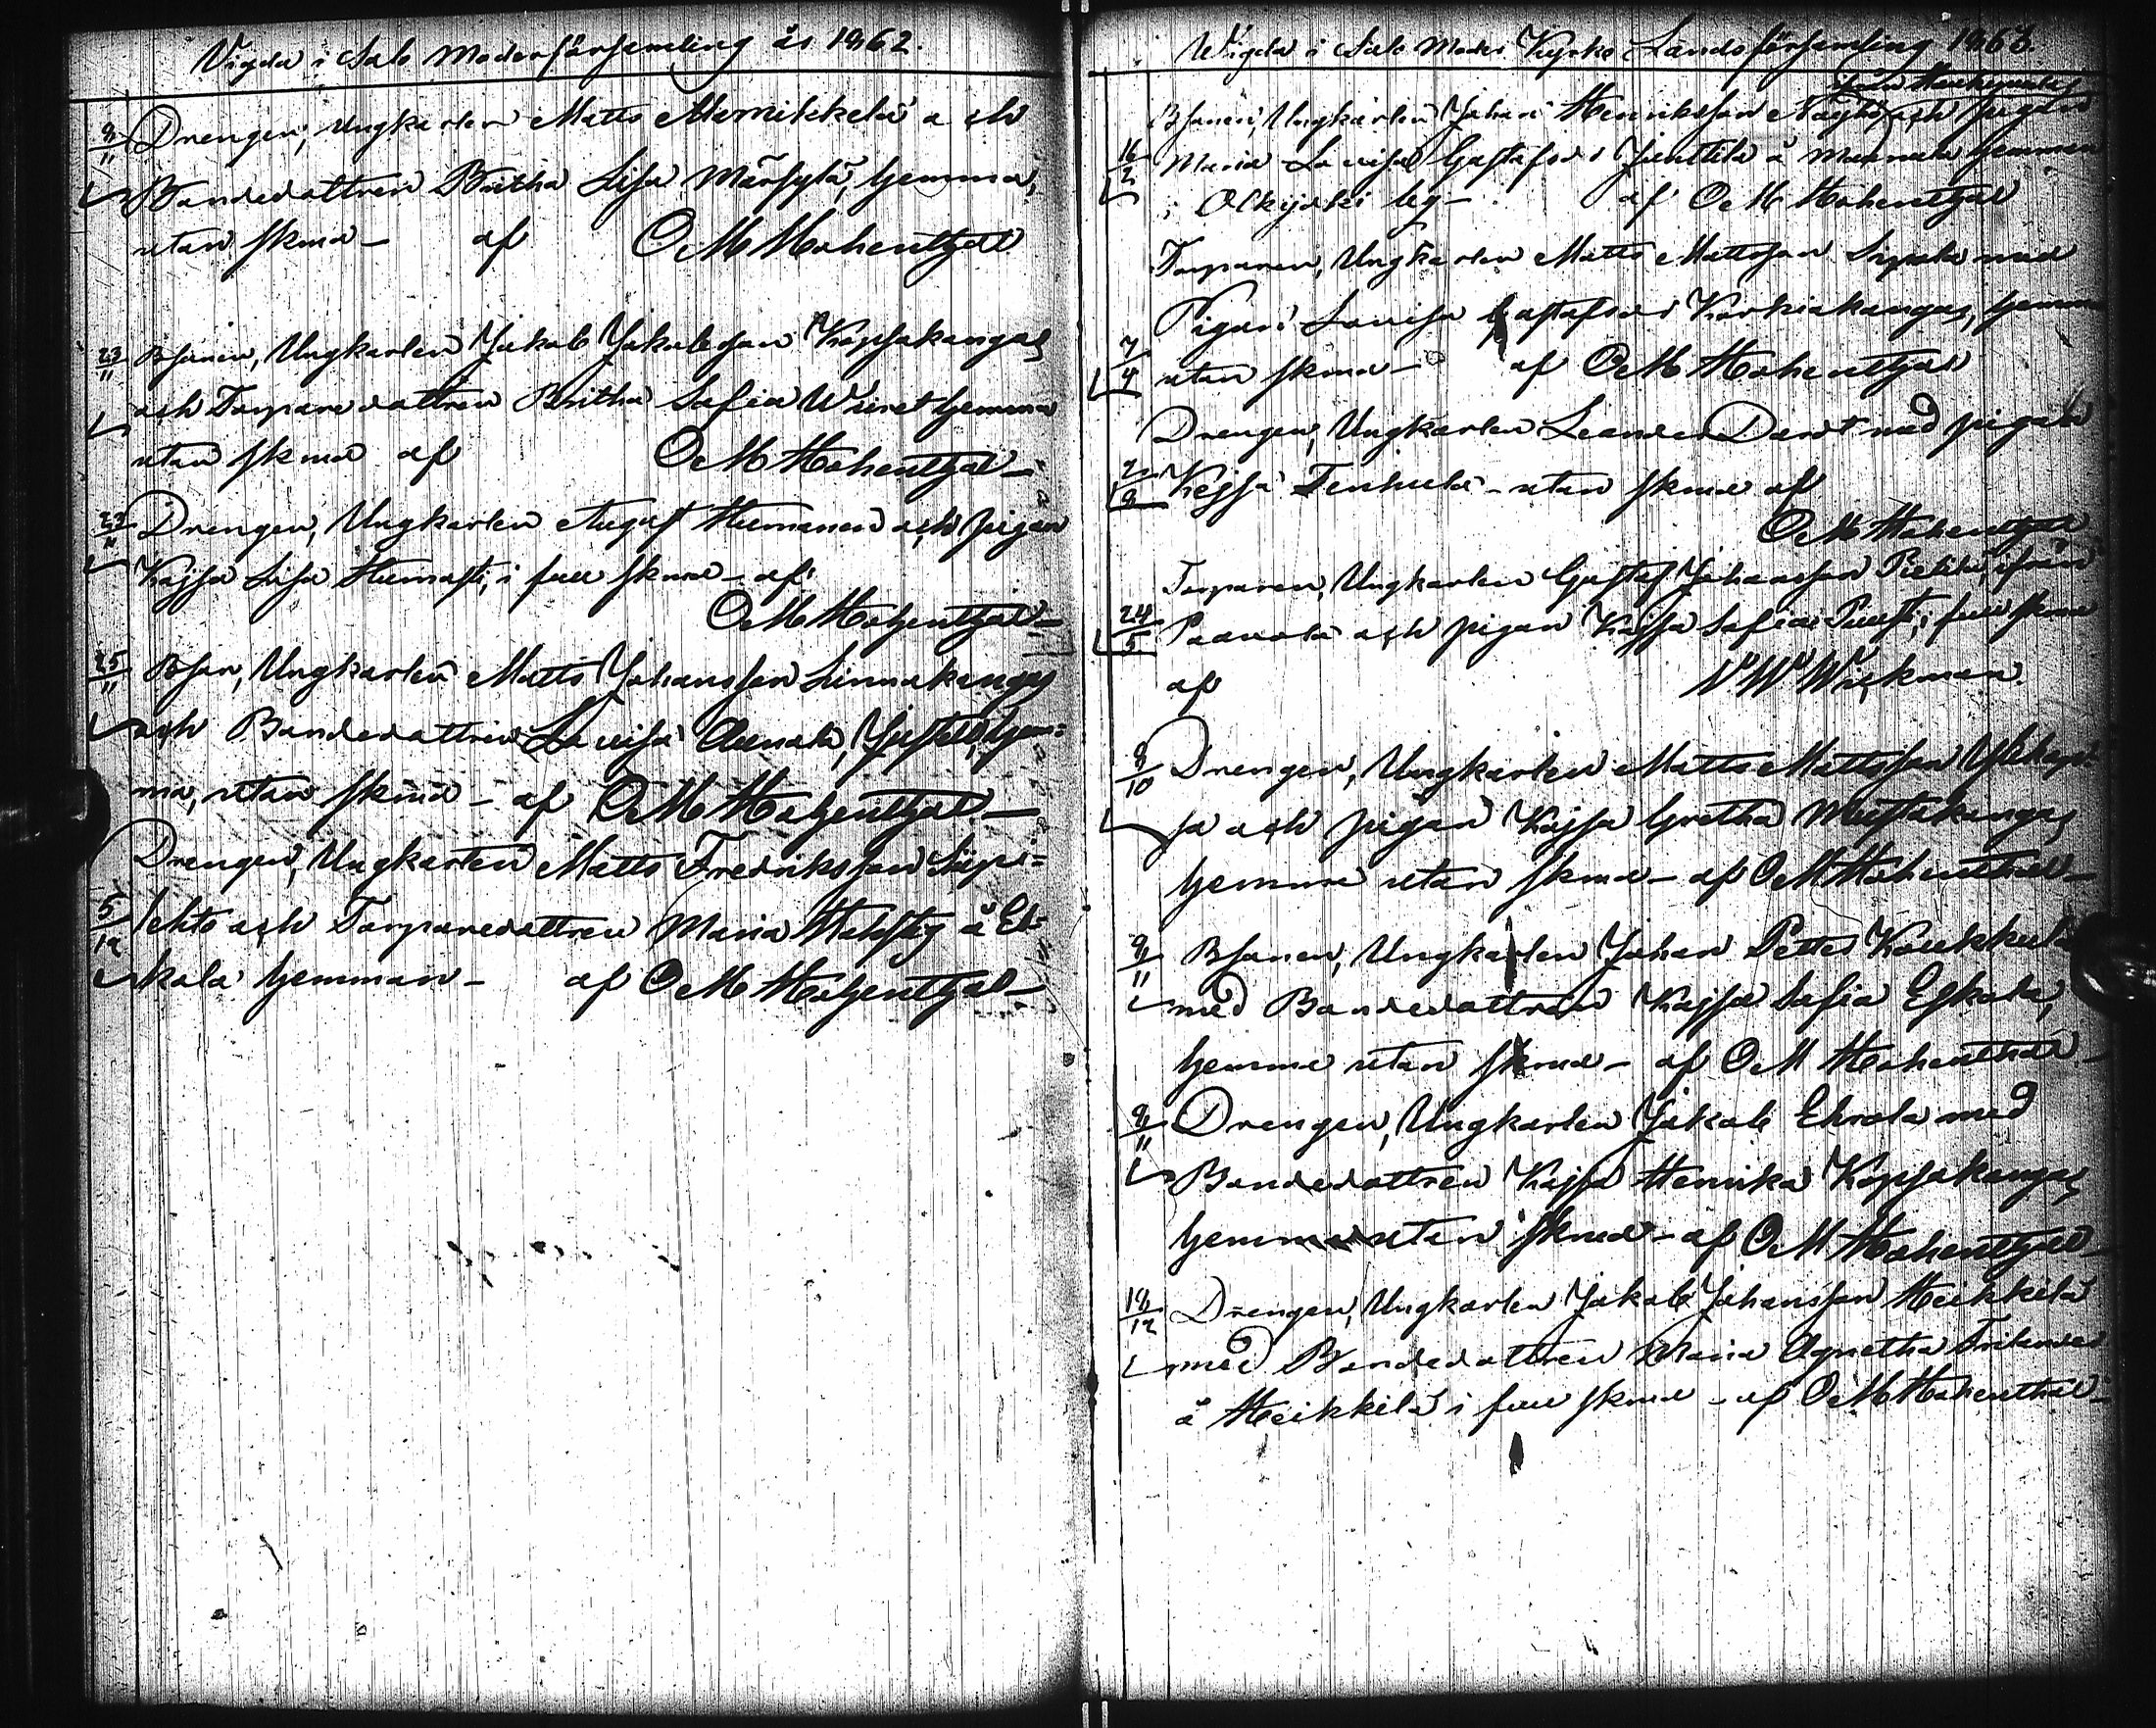 Vigda i Salo Moderförsamling år 1862.
9/11 Drengen, Ungkarlen Matts Marnikkelä a och
Bondedottren Britha Lisa Märsylä, hemma,
utan skrud – af O M Hohenthal
23/11 Bsonen, Ungkarlen Jakob Jakobsson Kopsakangas
och Torparedottren Britha Sofia Wiiret hemma
utan skrud af O M Hohenthal –
23/11 Drengen, Ungkarlen August Huumonen och pigan
Kajsa Lisa Huumasti, i full skrud – af
O M Hohenthal –
25/11 Bson, Ungkarlen Matts Johansson Linnakangas
och Bondedottren Lovisa Aunola, hem=
ma, utan skrud – af O M Hohenthal –
Drengen, Ungkarlen Matts Fredriksson Siipi=
5/12 lehto och Torparedottren Maria Hahstig å Es=
kola hemman – af O M Hohenthal –
Wigda i Salo Moder Kyrko Landsförsamling 1863.
Bsonen, Ungkarlen Johan Henriksson och pigan
16/2 Maria Lovisa Gustafsdr Junttila å hemman
i Olkijoki by – af O M Hohenthal
Torparen, Ungkarlen Matts Mattsson Sipola med
Pigan Lovisa Gustafsdr Korkiakangas, hemma
7/4 utan skrud – af O M Hohenthal
Drengen, Ungkarlen Leander med pigan
2/8 Kajsa Tenhula – utan skrud af
O M Hohenthal
Torparen, Ungkarlen Gustaf Johansson Pietilä, ifrån
24/5 Paavola och pigan Kajsa Sofia i full skrud
af N W Wickman
9/10 Drengen, Ungkarlen Matts Mattsson Ylikop=
sa och pigan Kajsa Gretha Mustakangas
hemma utan skrud – af O M Hohenthal –
9/11 Bsonen, Ungkarlen Johan Petter Kaukkula
med Bondedottren Kajsa Sofia Eskola,
hemma utan skrud – af O M Hohenthal –
9/11 Drengen, Ungkarlen Jakob Ehrola med
Bondedottren Kajsa Henrika Kopsakangas
hemma utan skrud – af O M Hohenthal –
18/12 Drengen, Ungkarlen Jakob Johansson Heikkilä
med Bondedottren Maria Agnetha
å Heikkilä i full skrud – af O M Hohenthal –